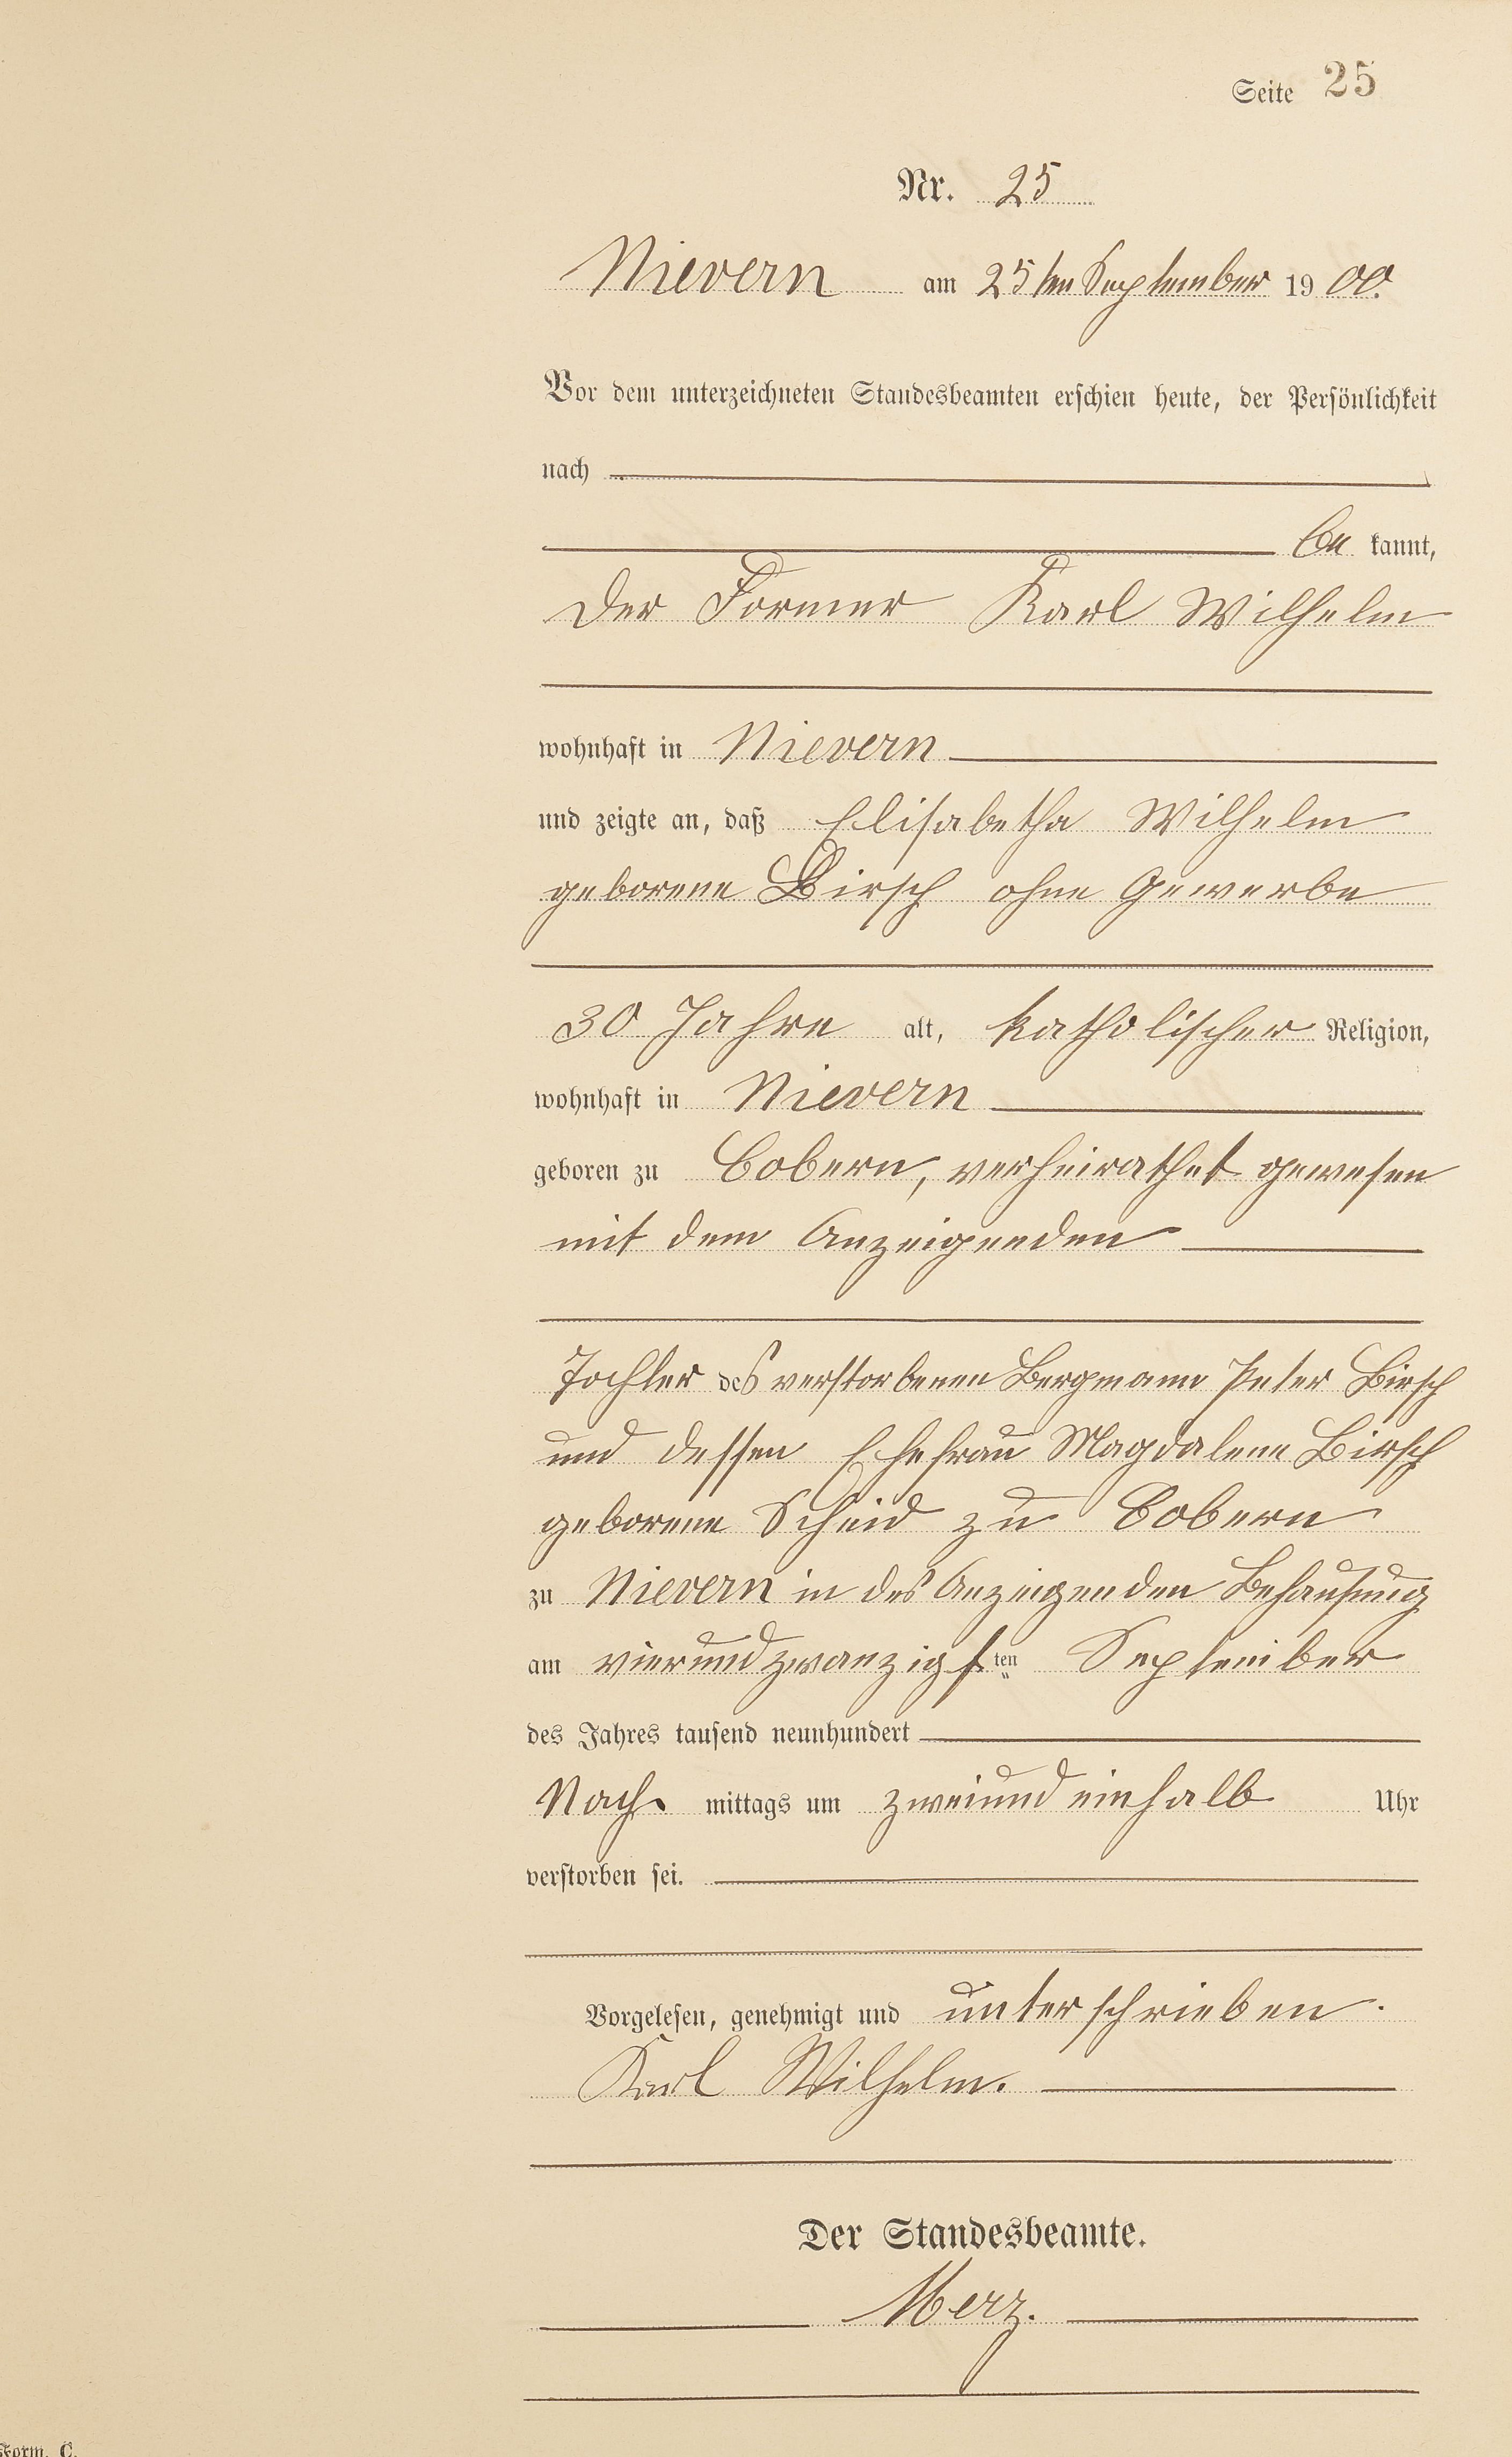 Seite 25
Nr. 25
Nievern am 25ten September 1900.
Vor dem unterzeichneten Standesbeamten erschien heute, der Persönlichkeit
nach
be kannt,
der Former Karl Wilhelm
wohnhaft in Nievern
und zeigte an, daß Elisabetha Wilhelm
geborene Birsch ohne Gewerbe
30 Jahre alt, katholischer Religion,
wohnhaft in Nievern
geboren zu Cobern, verheirathet gewesen
mit dem Anzeigenden
Tochter des verstorbenen Bergmann Peter Birsch
und dessen Ehefrau Magdalene Birsch
geborene Scheid zu Cobern
zu Nievern in des Anzeigenden Behausung
am vierundzwanzigsten September
des Jahres tausend neunhundert
Nach mittags um zweiundeinhalb Uhr
verstorben sei.
Vorgelesen, genehmigt und unterschrieben.
Karl Wilhelm.
Der Standesbeamte.
Merz.
Form. C.